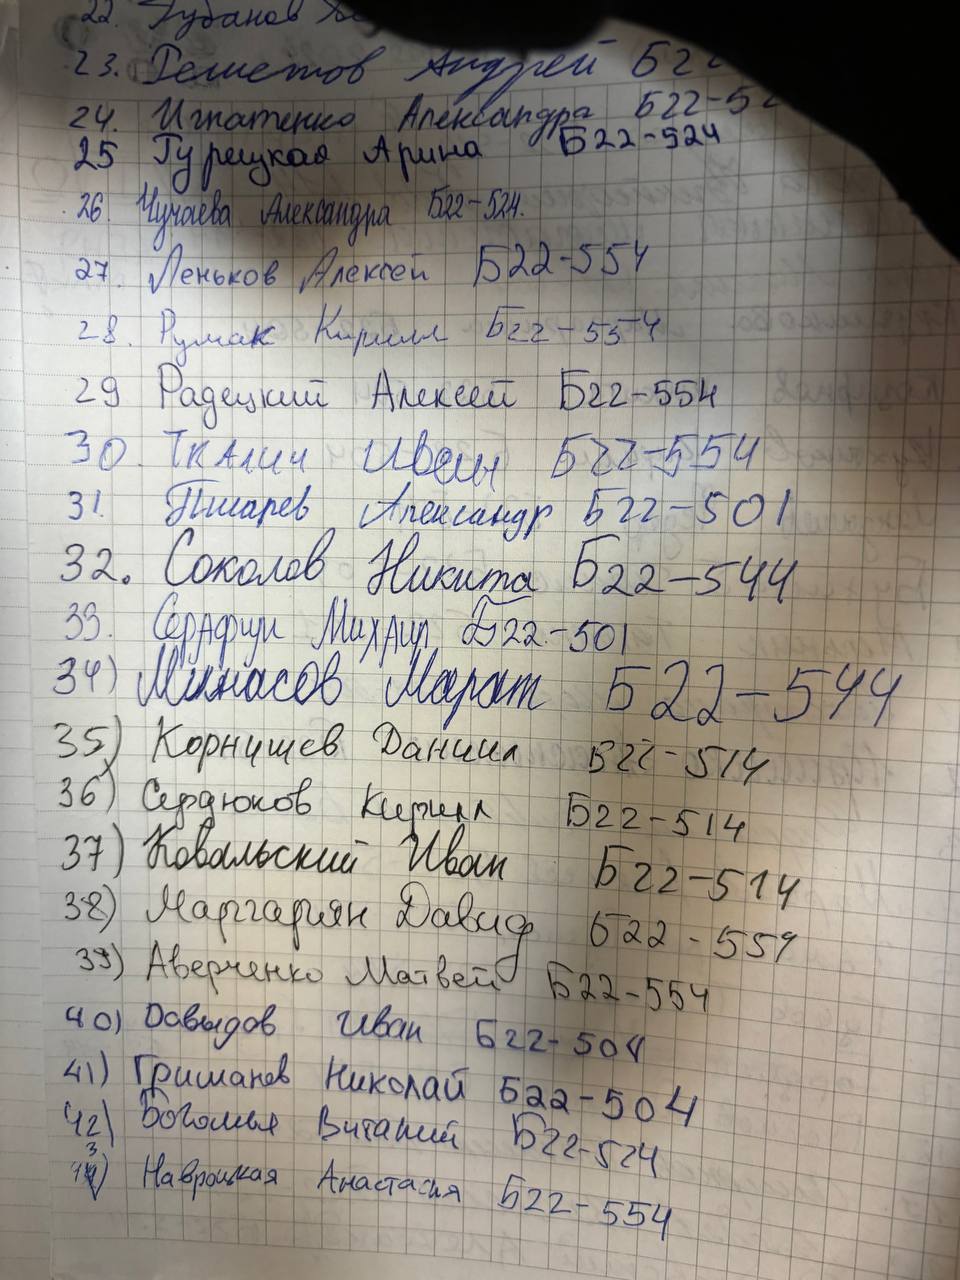 22. Губанов
23. Решетов Андрей Б22
24. Игнатенко Александра Б22-52
25 Гурецкая Арина Б22-524
26. Чучаева Александра Б22-524.
27. Леньков Алексей Б22-554
28. Румак Кирилл Б22-554
29 Радецкий Алексей Б22-554
30. Ткалич Иван Б22-554
31. Писарев Александр Б22-501
32. Соколов Никита Б22-544
33. Серафин Михаил Б22-501
34) Минасов Марат Б22-544
35) Корнушев Даниил Б22-514
36) Сердюков Кирилл Б22-514
37) Ковальский Иван Б22-514
38) Маргарян Давид Б22-554
39) Аверченко Матвей Б22-554
40) Давыдов Иван Б22-504
41) Гришанов Николай Б22-504
42) Виталий Б22-524
43) Навроцкая Анастасия Б22-554